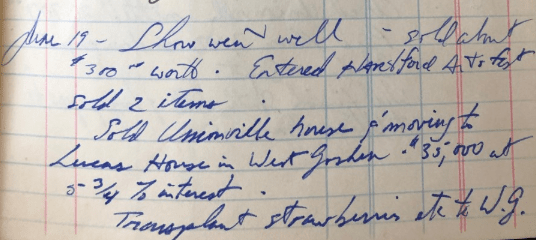 June 19 - Show went well - sold about
$300⁰⁰ worth. Entered Haverford Arts fest
sold 2 items.
Sold Unionville house & moving to
Lucas House in West Goshen. $35,000 at
5 3/4 % interest.
Transplant strawberries etc to W.G.